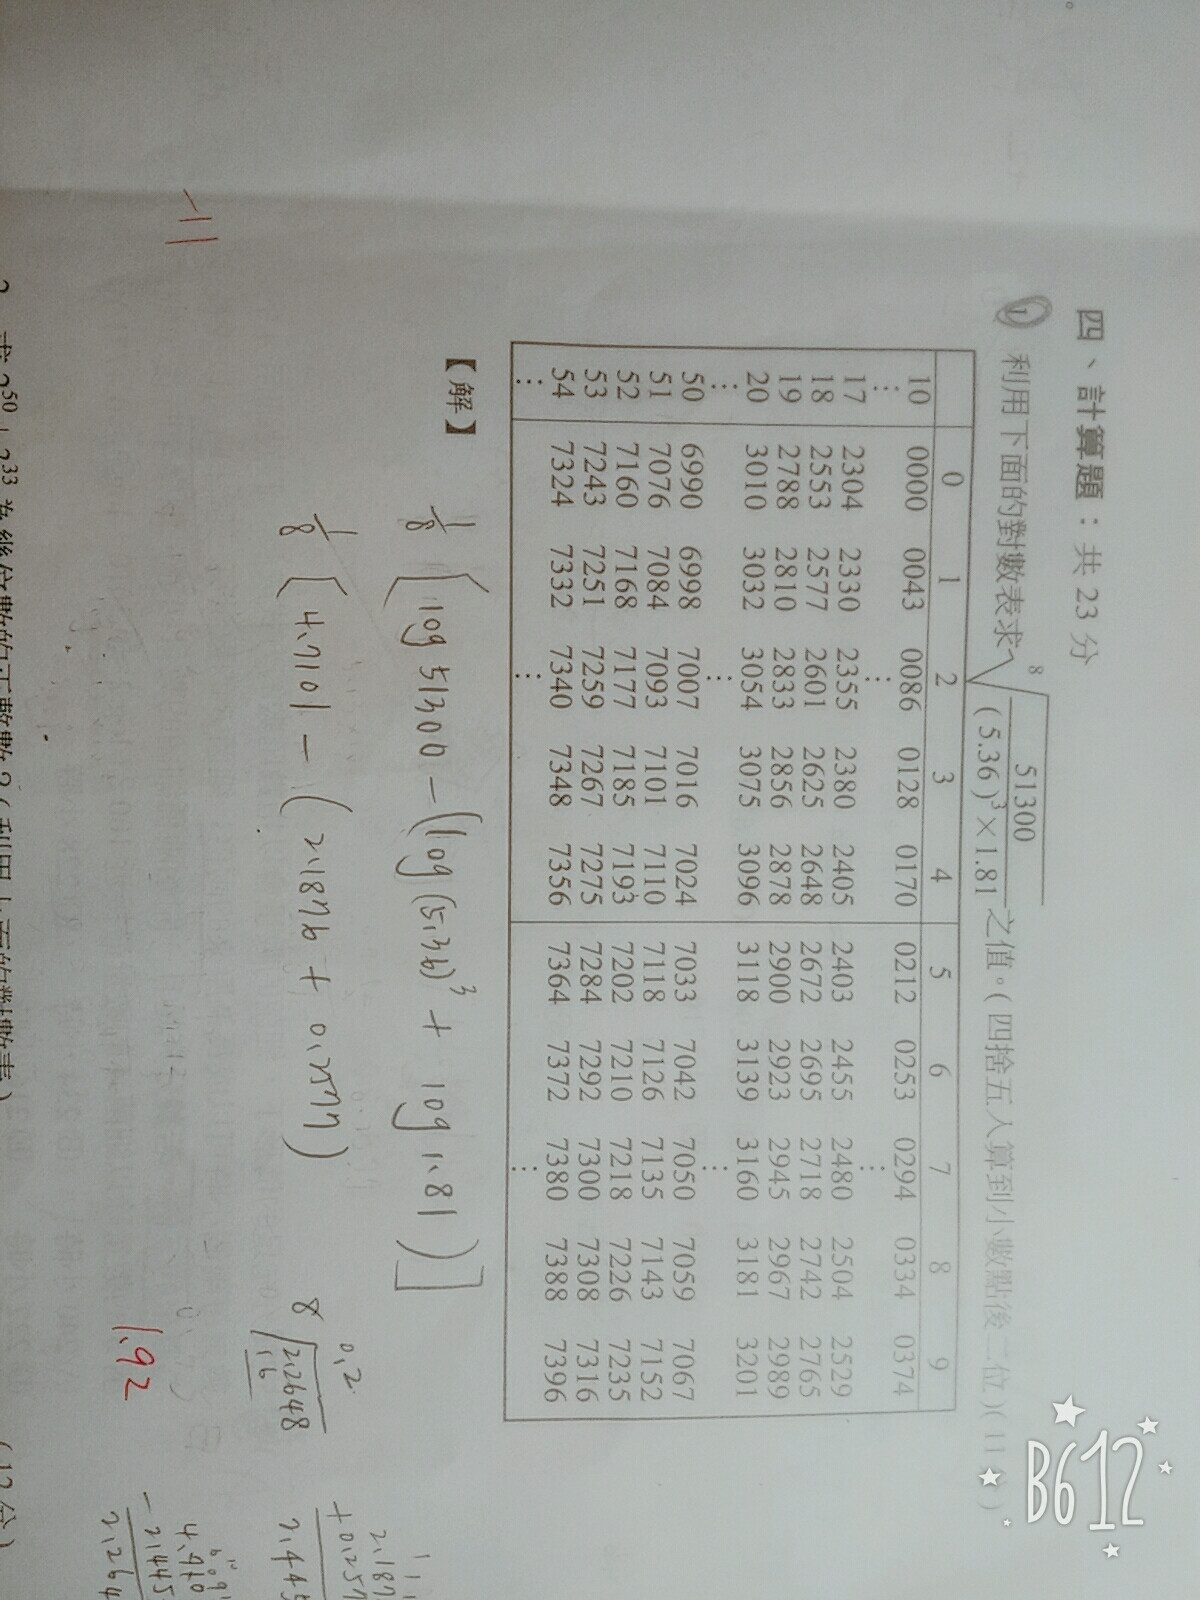 四、計算題：共 23 分
1 利用下面的對數表求 ⁸√(51300 / (5.36)³×1.81) 之值。(四捨五入算到小數點後二位)(11 分)
0 1 2 3 4 5 6 7 8 9
10 0000 0043 0086 0128 0170 0212 0253 0294 0334 0374
⋮ ⋮ ⋮
17 2304 2330 2355 2380 2405 2403 2455 2480 2504 2529
18 2553 2577 2601 2625 2648 2672 2695 2718 2742 2765
19 2788 2810 2833 2856 2878 2900 2923 2945 2967 2989
20 3010 3032 3054 3075 3096 3118 3139 3160 3181 3201
⋮ ⋮ ⋮
50 6990 6998 7007 7016 7024 7033 7042 7050 7059 7067
51 7076 7084 7093 7101 7110 7118 7126 7135 7143 7152
52 7160 7168 7177 7185 7193 7202 7210 7218 7226 7235
53 7243 7251 7259 7267 7275 7284 7292 7300 7308 7316
54 7324 7332 7340 7348 7356 7364 7372 7380 7388 7396
⋮ ⋮ ⋮
【解】
1/8 [log 51300 − (log (5.36)³ + log 1.81)]
1/8 [4.7101 − (2.1876 + 0.2577)
0.2
8 2.2648
16
1 1 1
2.187
+0.257
2.445
−2.445
2.264
1.92
−11
2 求 2⁵⁰
(12 分)
B612